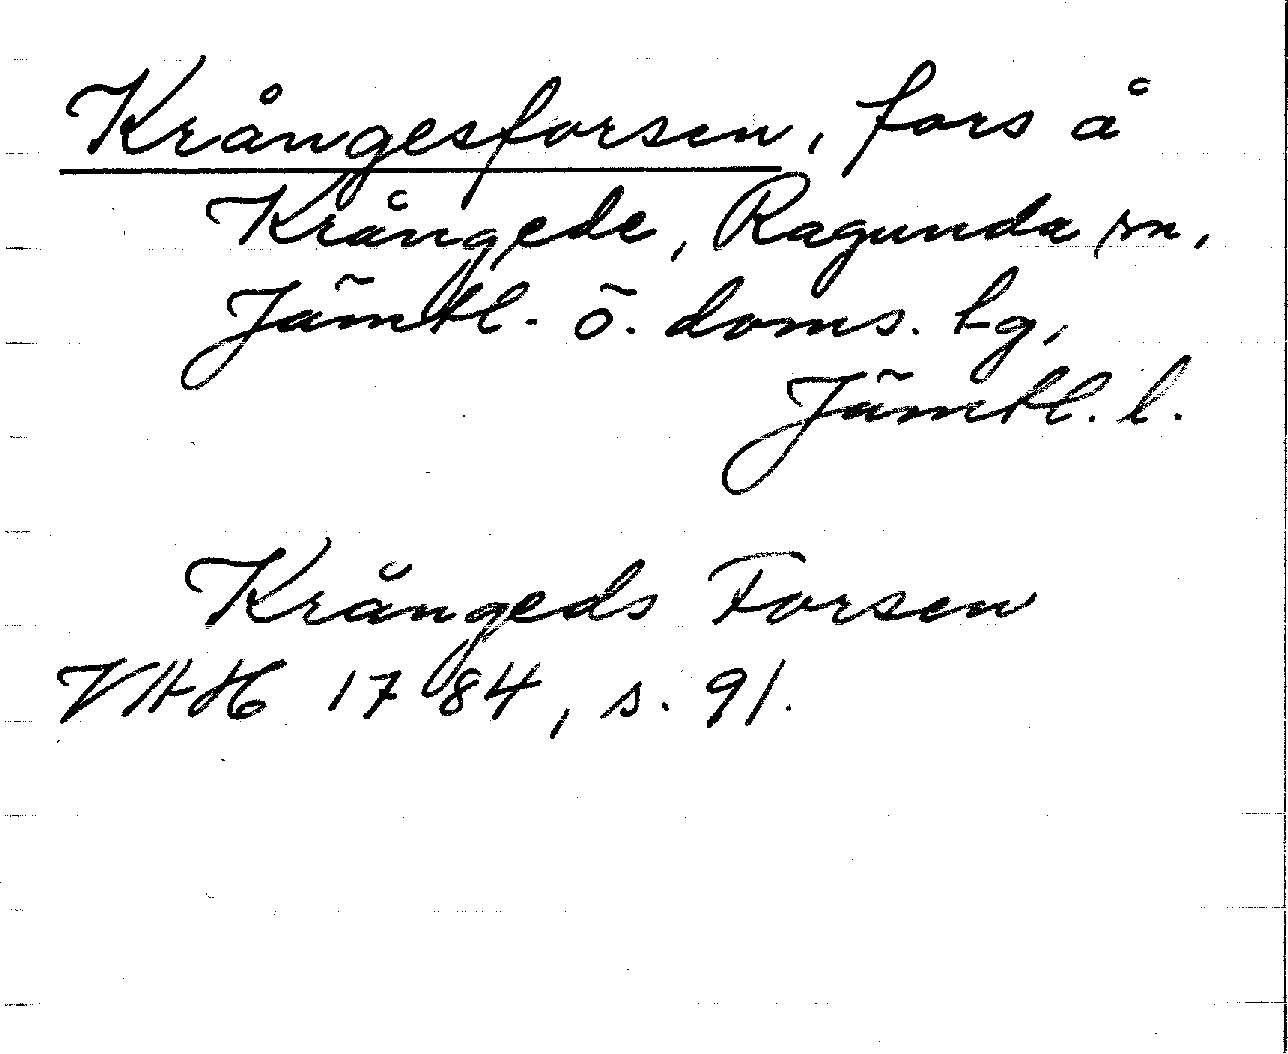 Krångesforsen, fors å
Krångede, Ragunda sn,
Jämtl. ö. doms. tg,
Jämtl. l.
Krångeds Forsen
VHH 1784, s. 91.